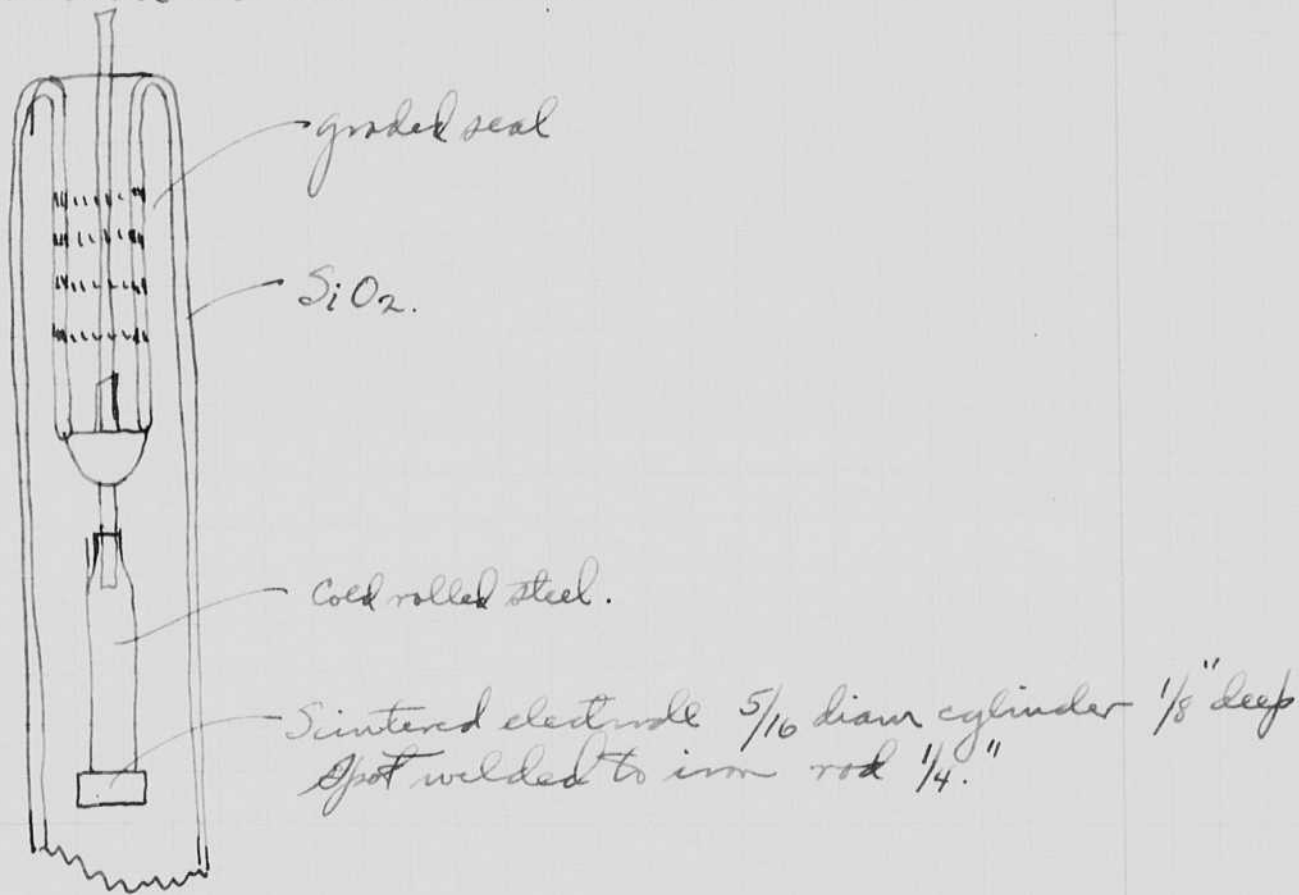 graded seal
SiO2.
Cold rolled steel.
Scintered electrode 5/16 diam cylinder 1/8" deep
Spot welded to iron rod 1/4."